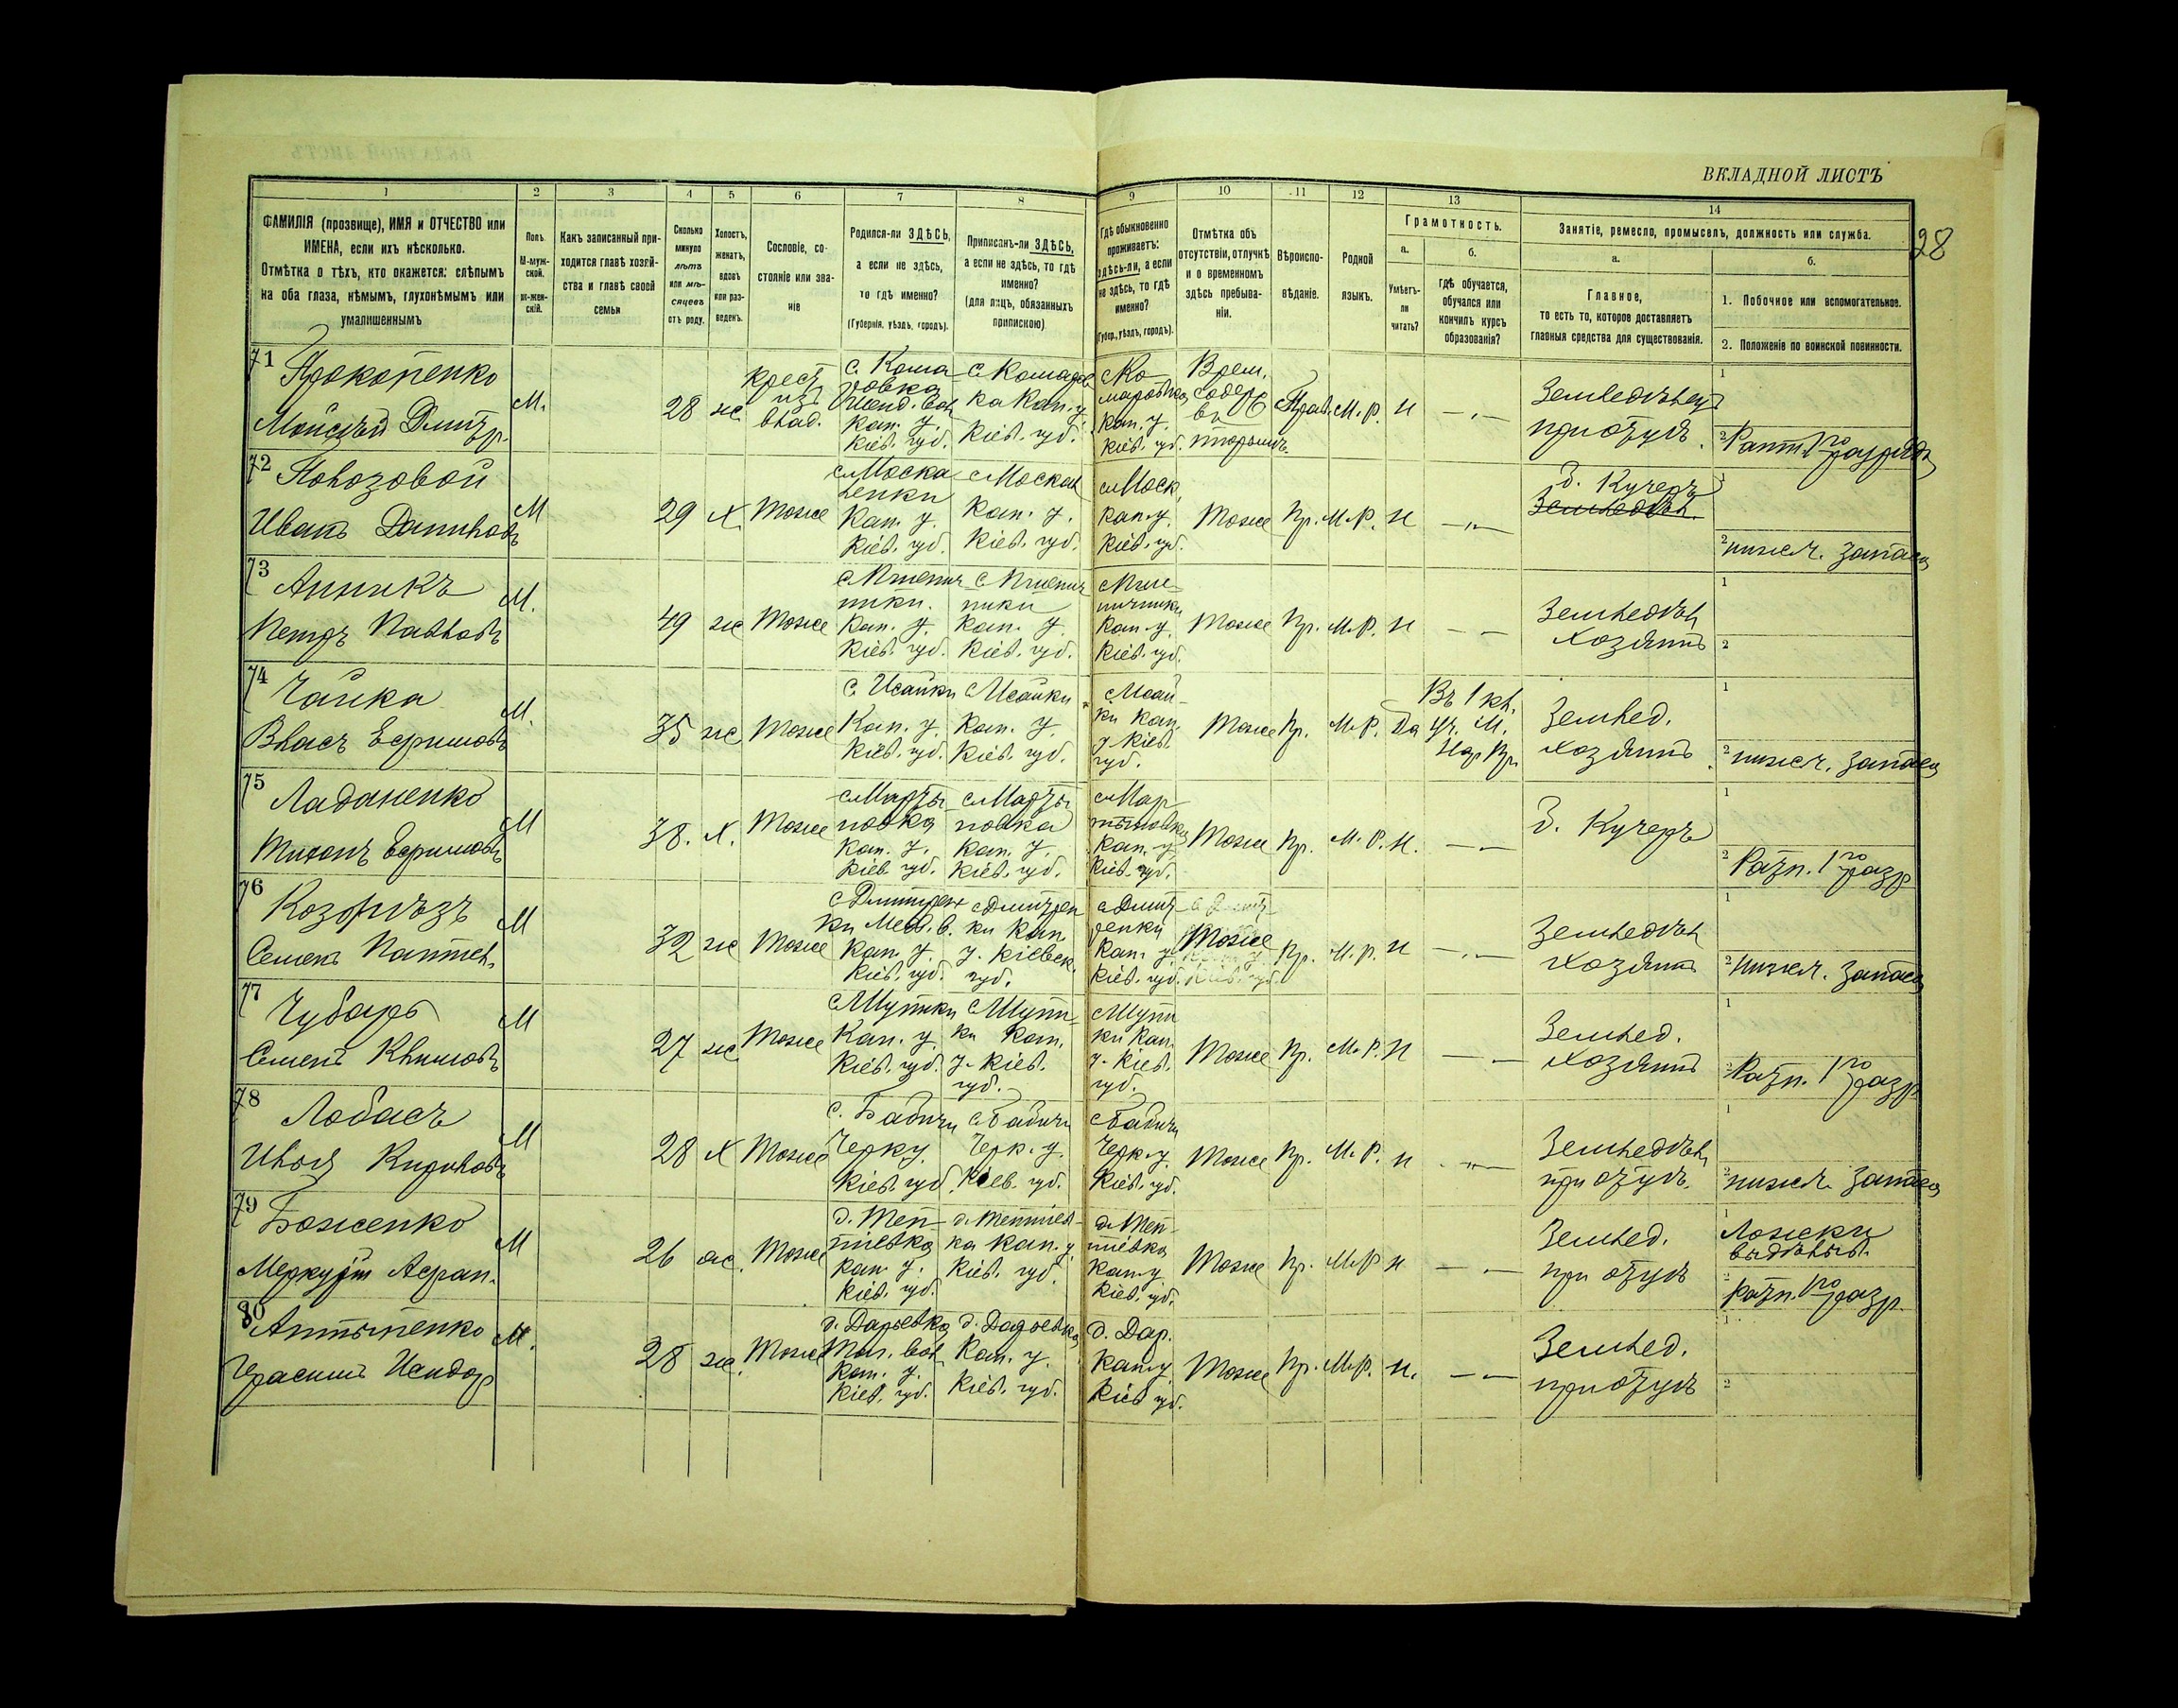 ВКЛАДНОЙ ЛИСТЪ
28
1 2 3 4 5 6 7 8 9 10 11 12 13 14
ФАМИЛІЯ (прозвище), ИМЯ и ОТЧЕСТВО или
ИМЕНА, если ихъ нѣсколько.
Отмѣтка о тѣхъ, кто окажется: слѣпымъ
на оба глаза, нѣмымъ, глухонѣмымъ или
умалишеннымъ
Полъ.
М-муж-
ской.
ж-жен-
скій.
Какъ записанный при-
ходится главѣ хозяй-
ства и главѣ своей
семьи
Сколько
минуло
лѣтъ
или мѣ-
сяцевъ
отъ роду.
Холостъ,
женатъ,
вдовъ
или раз-
веденъ.
Сословіе, со-
стояніе или зва-
ніе
Родился-ли ЗДѢСЬ,
а если не здѣсь,
то гдѣ именно?
(Губернія, уѣздъ, городъ).
Приписанъ-ли ЗДѢСЬ,
а если не здѣсь, то гдѣ
именно?
(для лицъ, обязанныхъ
припискою)
Гдѣ обыкновенно
проживаетъ:
здѣсь-ли, а если
не здѣсь, то гдѣ
именно?
(Губер., уѣздъ, городъ).
Отмѣтка объ
отсутствіи, отлучкѣ
и о временномъ
здѣсь пребыва-
ніи.
Вѣроиспо-
вѣданіе.
Родной
языкъ.
Грамотность.
а.
Умѣетъ-
ли
читать?
б.
гдѣ обучается,
обучался или
кончилъ курсъ
образованія?
Занятіе, ремесло, промыселъ, должность или служба.
а.
Главное,
то есть то, которое доставляетъ
главныя средства для существованія.
б.
1. Побочное или вспомогательное.
2. Положеніе по воинской повинности.
71 Прокопенко
Мойсѣй Дмитр.
М.
28
ж.
крест.
изъ
влад.
с. Кома
ровка
кан. у.
Кіев. губ.
с Комаров
ка Кан. у.
Кіев. губ.
с Ко
маровка
Кан. у.
Кіев. губ.
Врем.
содер
въ
тюрьмѣ.
Прав. М. Р. н —„—
Земледѣлец
при отцѣ.
1
2 Ратн. 1го разряда
72
Иванъ Данилов
М
29 х. Тоже
с Моска
ленки
Кан. у.
Кіев. губ.
с Москал
Кан. у.
Кіев. губ.
с Моск.
кан. у.
Кіев. губ.
Тоже Пр. М. Р. н —„—
д. Кучеръ
Земледѣл.
1
2 нижн. запаса
73 Анникъ
Петръ Павловъ
М.
49 ж Тоже
с Пшенич
ники.
Кан. у.
Кіев. губ.
с Пшенич
ники
Кан. у.
Кіев. губ.
с Пше
ничники
Кан. у.
Кіев. губ.
Тоже Пр. М. Р. н — —
Земледѣл
хозяинъ
1
2
74 Чайка
Власъ Ефимовъ
М.
35 ж Тоже
с. Исайки
Кан. у.
Кіев. губ.
с Исайки
Кан. у.
Кіев. губ.
с Исай
ки Кан.
у Кіев.
губ.
Тоже Пр. М. Р. Да
Въ 1 кл.
уч. М.
Нар. Пр.
Земл̣ед.
хозяинъ.
1
2 нижн. запаса
75 Ладаненко
Тихонъ Ефимовъ
М
38. х. Тоже
с Марты
новка
Кан. у.
Кіев. губ.
с Марты
новка
Кан. у.
Кіев. губ.
с Мар
тыновка
Кан. у
Кіев. губ.
Тоже Пр. М. Р. н. — —
д. Кучеръ
1
2 Ратн. 1го разр
76 Козорѣзъ
Семенъ Пантел.
М
32 ж Тоже
с Дмитрен
ки Мед. в.
Кан. у.
Кіев. губ.
с Дмитрен
ки Кан
у. Кіевск.
губ.
с Дмит
ренки
Кан. у.
Кіев. губ.
Тоже Пр. М. Р. н —„—
Земледѣл
хозяинъ
1
2 Нижн. запаса
77 Чубарь
Семенъ Климовъ
М
27 ж Тоже
с Шупики
Кан. у.
Кіев. губ.
с Шупи
ки Кан.
у. Кіев.
губ.
с Шупи
ки Кан.
у. Кіев.
губ.
Тоже Пр. М. Р. н — —
Землед.
хозяинъ
1
2 Ратн. 1го разр
78 Лобасъ
Илья Кириловъ
М
28 х Тоже
с. Бабичи
Черк у.
Кіев. губ.
с Бабичи
Черк. у.
Кіев. губ.
с Бабичи
Черк. у.
Кіев. губ.
Тоже Пр. М. Р. н —„—
Земледѣл
при отцѣ.
1
2 нижн. запаса
79 Боженко
Меркурій Афан.
М
26 ж. Тоже
д. Теп
тіевка
Кан. у.
Кіев. губ.
д. Тептіев
ка Кан. у.
Кіев. губ.
д. Теп
тіевка
Кан. у
Кіев. губ.
Тоже Пр. М. Р н — —
Землед.
при отцѣ
1 Ложеки
выдѣлыв.
2 Ратн. 1го разр
80 Антыпенко
Герасимъ Исидор
М.
28 ж. Тоже
д. Дарьевка
Таг. вол
Кан. у.
Кіев. губ.
д. Дарьевка
Кан. у.
Кіев. губ.
д. Дар.
Кан. у
Кіев губ.
Тоже Пр. М. Р. н. — —
Землед.
при отцѣ
1
2